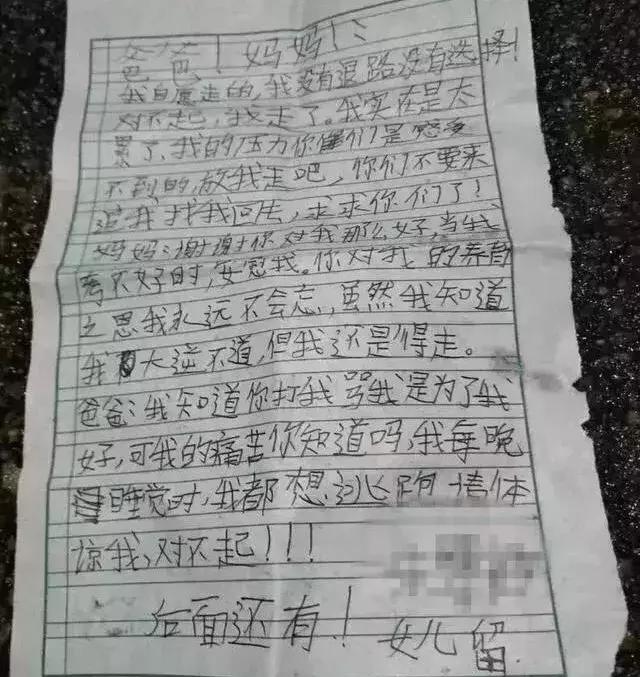 爸爸！妈妈！：
我自愿走的，我没有退路没有选择！
对不起，我走了。我实在是太
累了、我的压力你们是感受
不到的，放我走吧，你们不要来
追我找我回去，求求你们了！
妈妈：谢谢你对我那么好，当我
考不好时，安慰我。你对我的养育
之恩我永远不会忘，虽然我知道
我大逆不道，但我还是得走。
爸爸：我知道你打我骂我是为了我
好，可我的痛苦你知道吗，我每晚
睡觉时，我都想逃跑 请体
谅我，对不起！！！
后面还有！ 女儿留